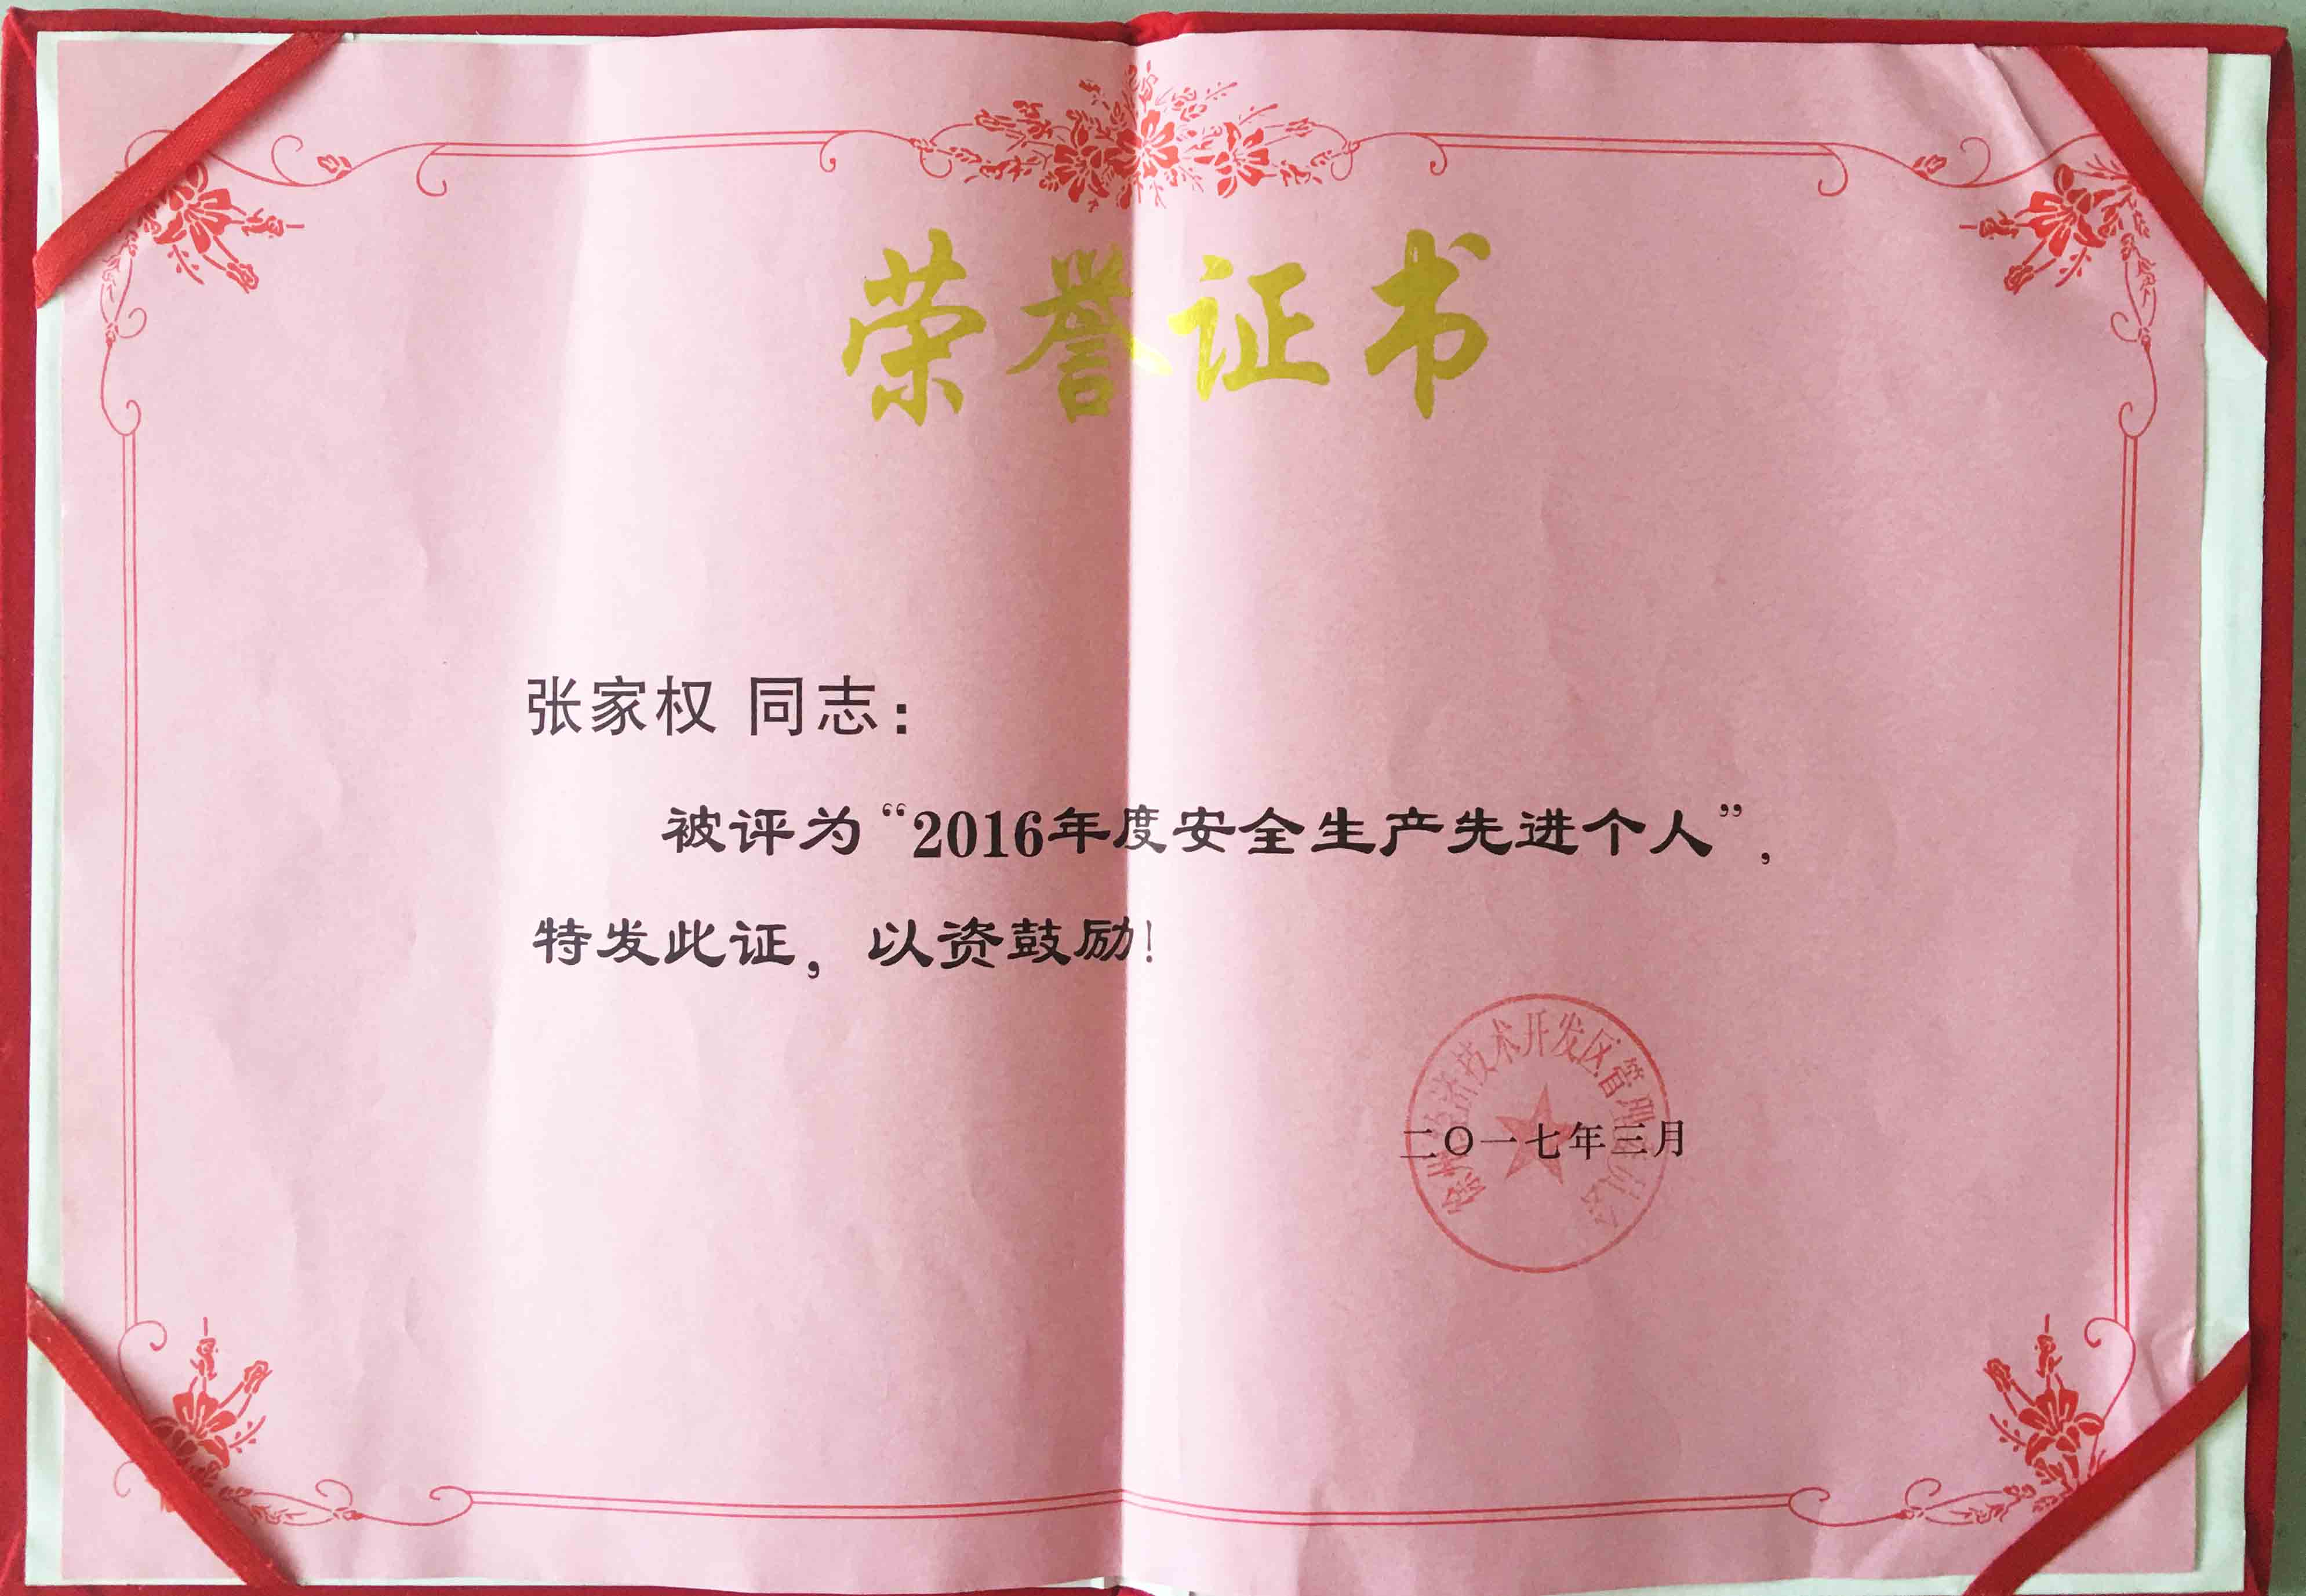 荣誉证书
张家权 同志：
被评为“2016年度安全生产先进个人”，
特发此证，以资鼓励！
经济技术开发区管理委员会
二〇一七年三月